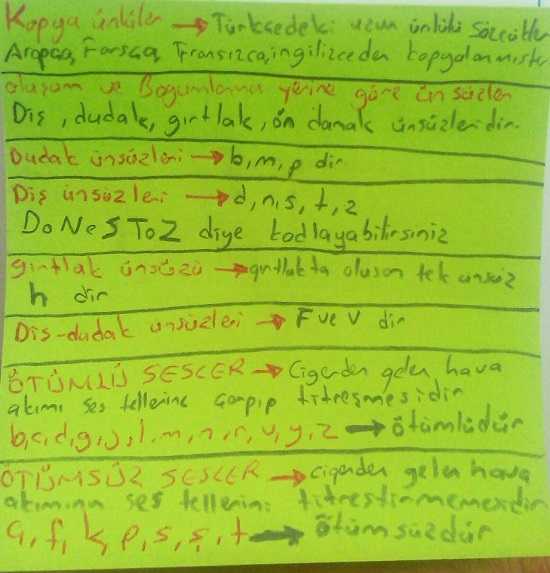 Kopya ünlüler → Türkçedeki uzun ünlülü sözcükler
Arapça, Farsça, Fransızca, ingilizceden kopyalanmıştır
oluşum ve Boğumlanma yerine göre ünsüzler
Diş, dudak, gırtlak, ön damak ünsüzleridir.
Dudak ünsüzleri → b, m, p dir
Diş ünsüzleri → d, n, s, t, z
DoNeSToZ diye kodlayabilirsiniz
gırtlak ünsüzü → gırtlakta oluşan tek ünsüz
h dir
Diş-dudak ünsüzleri → F ve V dir
ÖTÜMLÜ SESLER → Ciğerden gelen hava
akımı ses tellerine çarpıp titreşmesidir
b, c, d, g, j, l, m, n, r, v, y, z → ötümlüdür
ÖTÜMSÜZ SESLER → ciğerden gelen hava
akımının ses tellerini titreştirmemesidir
ç, f, k, p, s, ş, t → ötümsüzdür